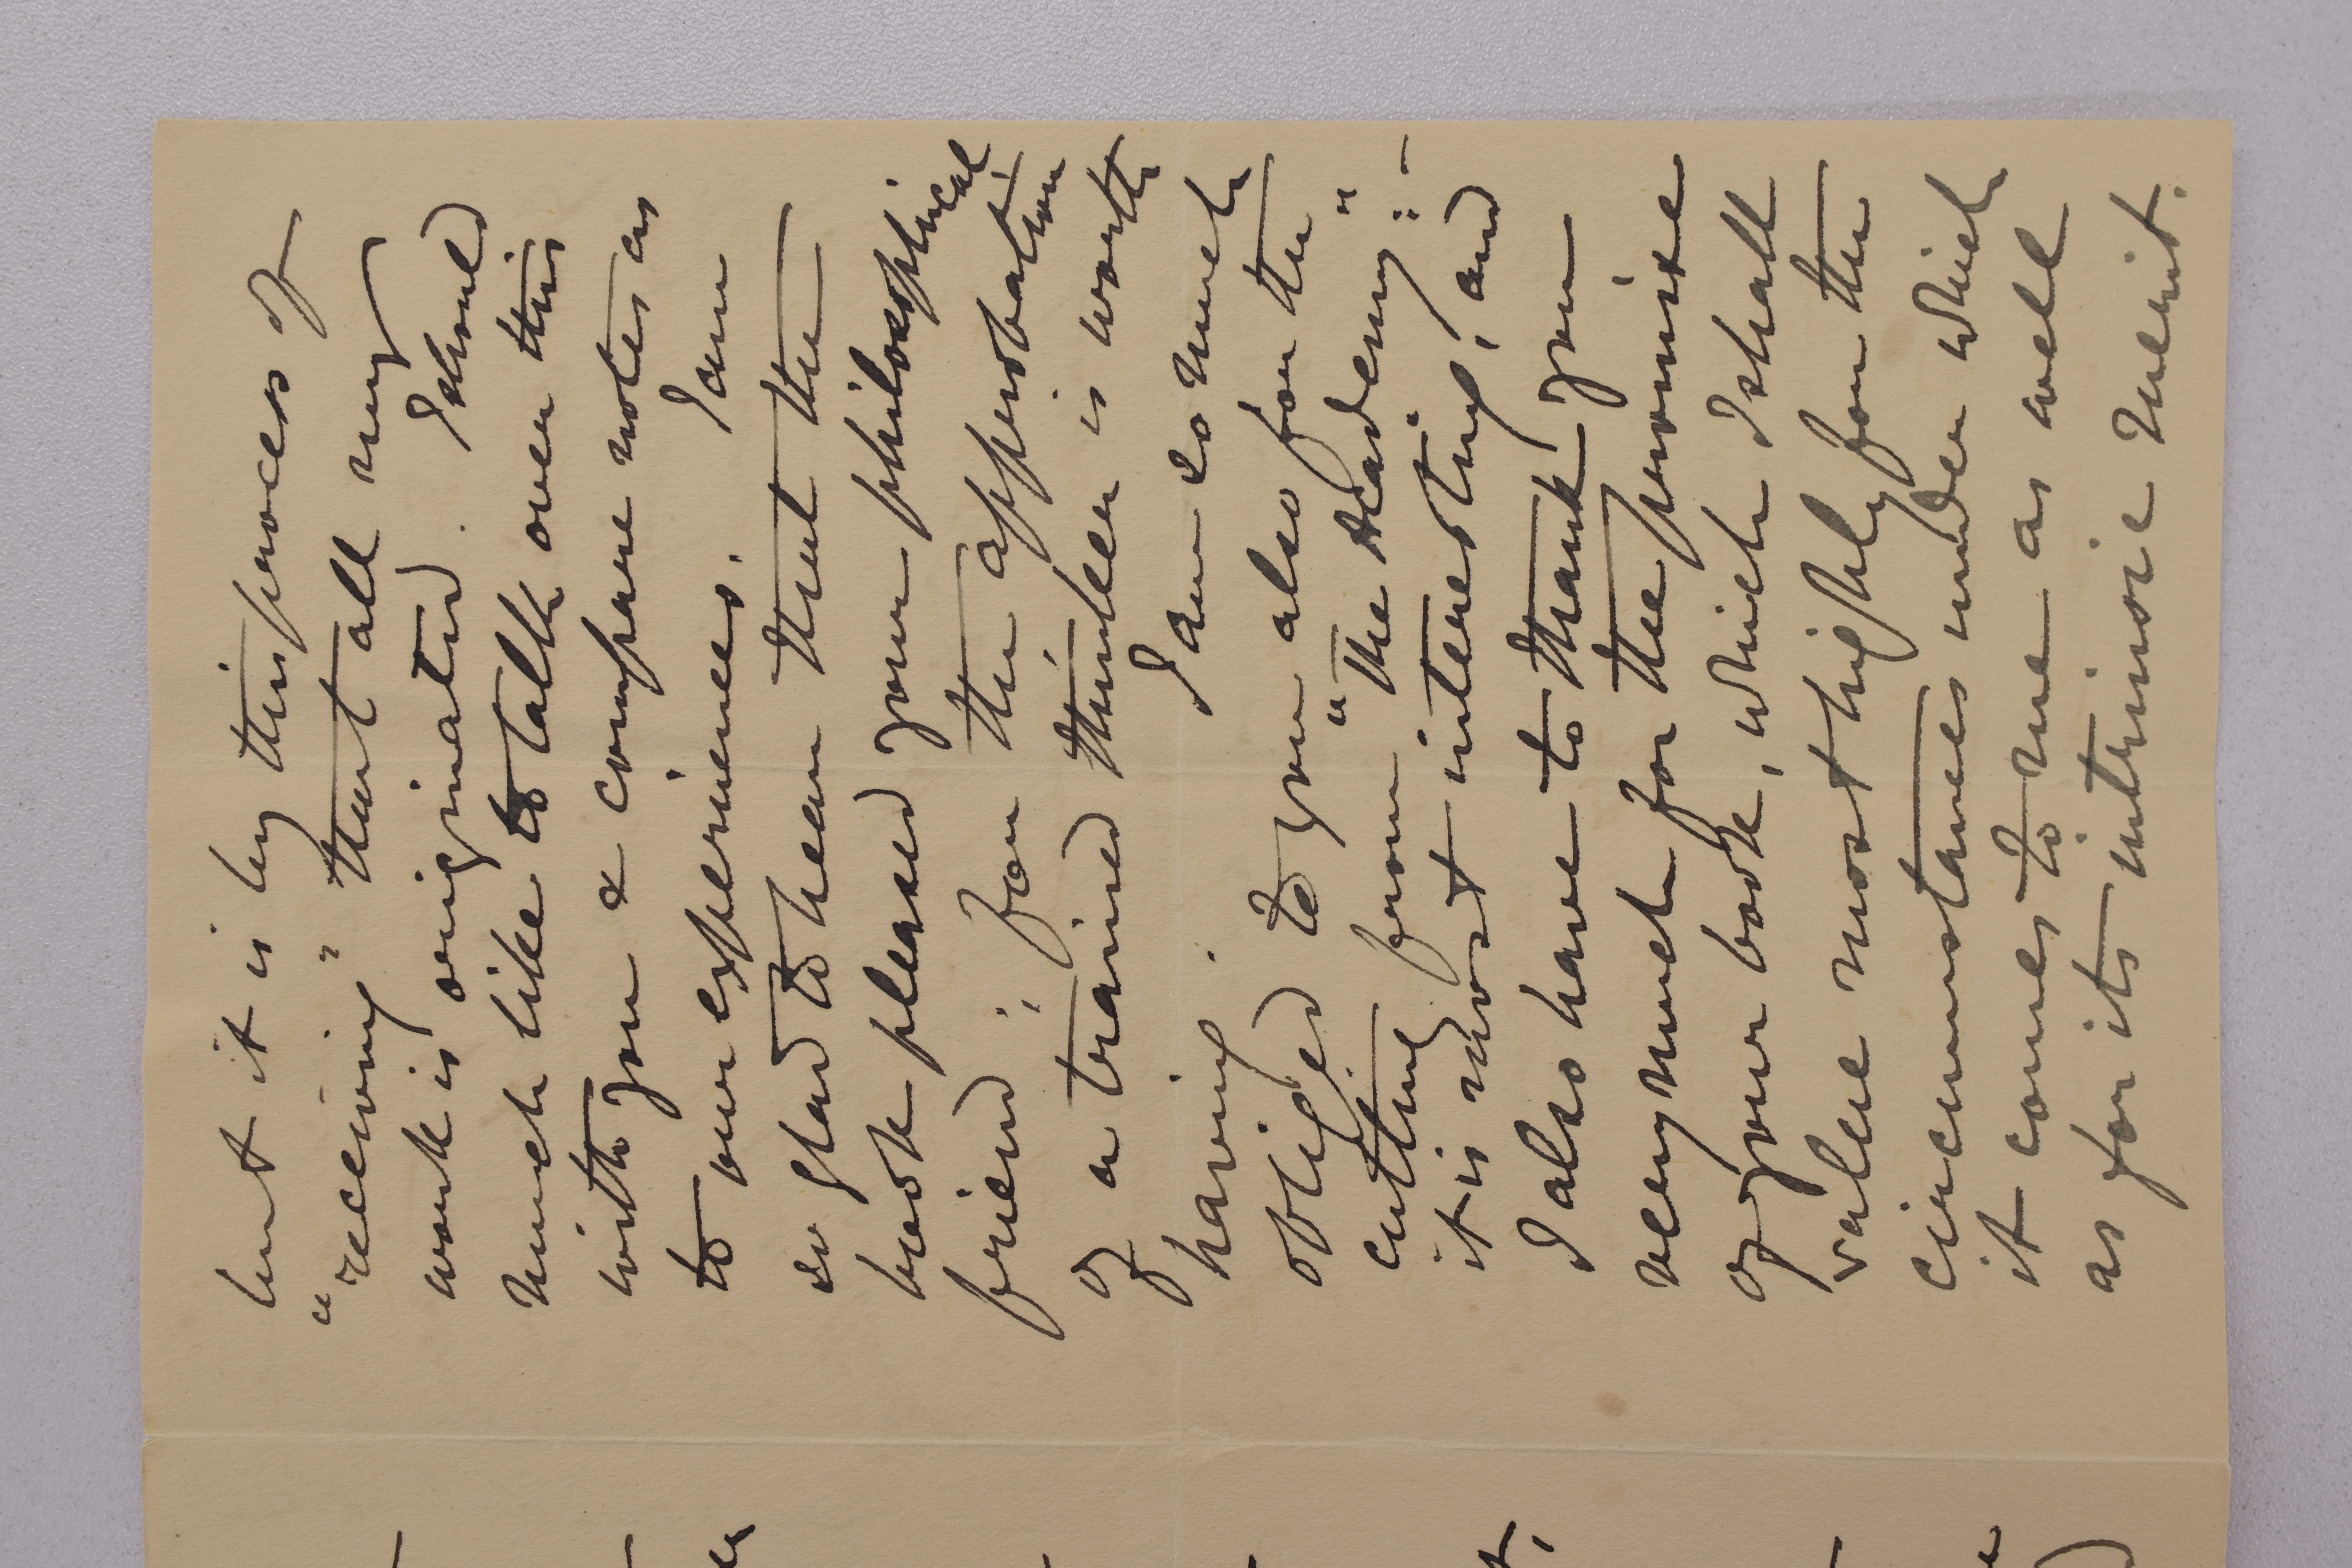 but it is by this process of
"receiving" that all my
work is originated. I should
much like to talk over this
with you & compare notes as
to our experiences. I am
so glad to hear that the
book pleased your philosophical
friend; for the approbation
of a trained thinker is worth
having. I am so much
obliged to you also for the
cutting from "the Academy":-
it is most interesting, and
I also have to thank you
very much for the promise
of your book, which I shall
value most highly for the
circumstances under which
it comes to me as well
as for its intrinsic merit.